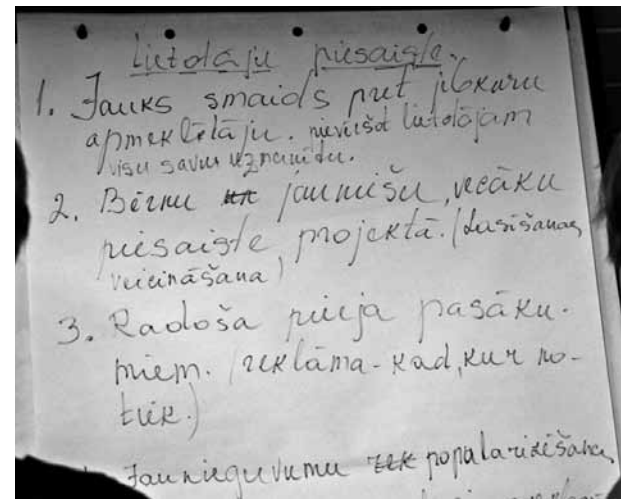 Lietotāju piesaiste.
1. Jauks smaids pret jebkuru
apmeklētāju. pievēršot lietotājam
visu savu uzmanību.
2. Bērnu un jauniešu, vecāku
piesaiste projektā. (Lasīšanas
veicināšana)
3. Radoša pieeja pasāku-
miem. (reklāma - kad, kur no-
tiek.)
Jaunieguvumu rek popularizēšana,